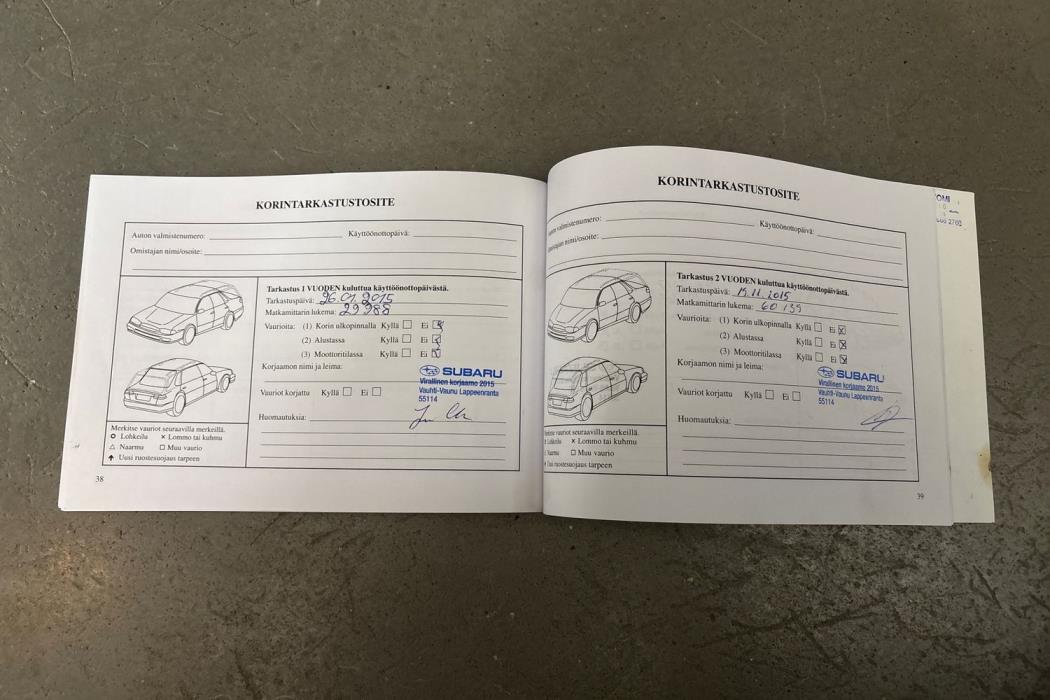 KORINTARKASTUSTOSITE
Auton valmistenumero: Käyttöönottopäivä:
Omistajan nimi/osoite:
Tarkastus 1 VUODEN kuluttua käyttöönottopäivästä.
Tarkastuspäivä: 26.01.2015
Matkamittarin lukema: 29988
Vaurioita: (1) Korin ulkopinnalla Kyllä Ei
(2) Alustassa Kyllä Ei
(3) Moottoritilassa Kyllä Ei
Korjaamon nimi ja leima:
SUBARU
Virallinen korjaamo 2015
Vauhti-Vaunu Lappeenranta
55114
Vauriot korjattu Kyllä Ei
Huomautuksia:
Merkitse vauriot seuraavilla merkeillä.
Lohkeilu × Lommo tai kuhmu
△ Naarmu □ Muu vaurio
Uusi ruostesuojaus tarpeen
38
KORINTARKASTUSTOSITE
Auton valmistenumero: Käyttöönottopäivä:
Omistajan nimi/osoite:
Tarkastus 2 VUODEN kuluttua käyttöönottopäivästä.
Tarkastuspäivä: 19.11.2015
Matkamittarin lukema: 60139
Vaurioita: (1) Korin ulkopinnalla Kyllä Ei
(2) Alustassa Kyllä Ei
(3) Moottoritilassa Kyllä Ei
Korjaamon nimi ja leima:
SUBARU
Virallinen korjaamo 2015
Vauhti-Vaunu Lappeenranta
55114
Vauriot korjattu Kyllä Ei
Huomautuksia:
vauriot seuraavilla merkeillä.
Lohkeilu × Lommo tai kuhmu
Naarmu □ Muu vaurio
Uusi ruostesuojaus tarpeen
39